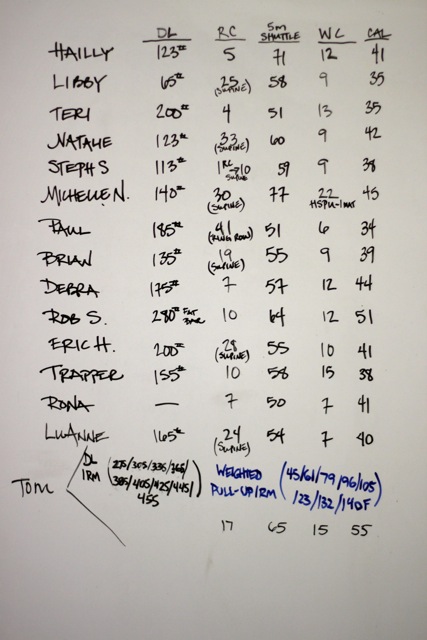 DL RC 5m SHUTTLE WC CAL
HAILLY 123# 5 71 12 41
LIBBY 65# 25 (SUPINE) 58 9 35
TERI 200# 4 51 13 35
NATALIE 123# 33 (SUPINE) 60 9 42
STEPH S 113# 1RC → 10 SUPINE 59 9 38
MICHELLE N. 140# 30 (SUPINE) 77 22 HSPU-1MAT 45
PAUL 185# 41 (RING ROW) 51 6 34
BRIAN 135# 19 (SUPINE) 55 9 39
DEBRA 175# 7 57 12 44
ROB S. 280# FAT BAR 10 64 12 51
ERIC H. 200# 28 (SUPINE) 55 10 41
TRAPPER 155# 10 58 15 38
RONA — 7 50 7 41
LUANNE 165# 24 (SUPINE) 54 7 40
TOM DL 1RM (275/305/335/365/ 385/405/425/445/ 455 WEIGHTED PULL-UP 1RM (45/61/79/96/105 /123/132/140F)
17 65 15 55